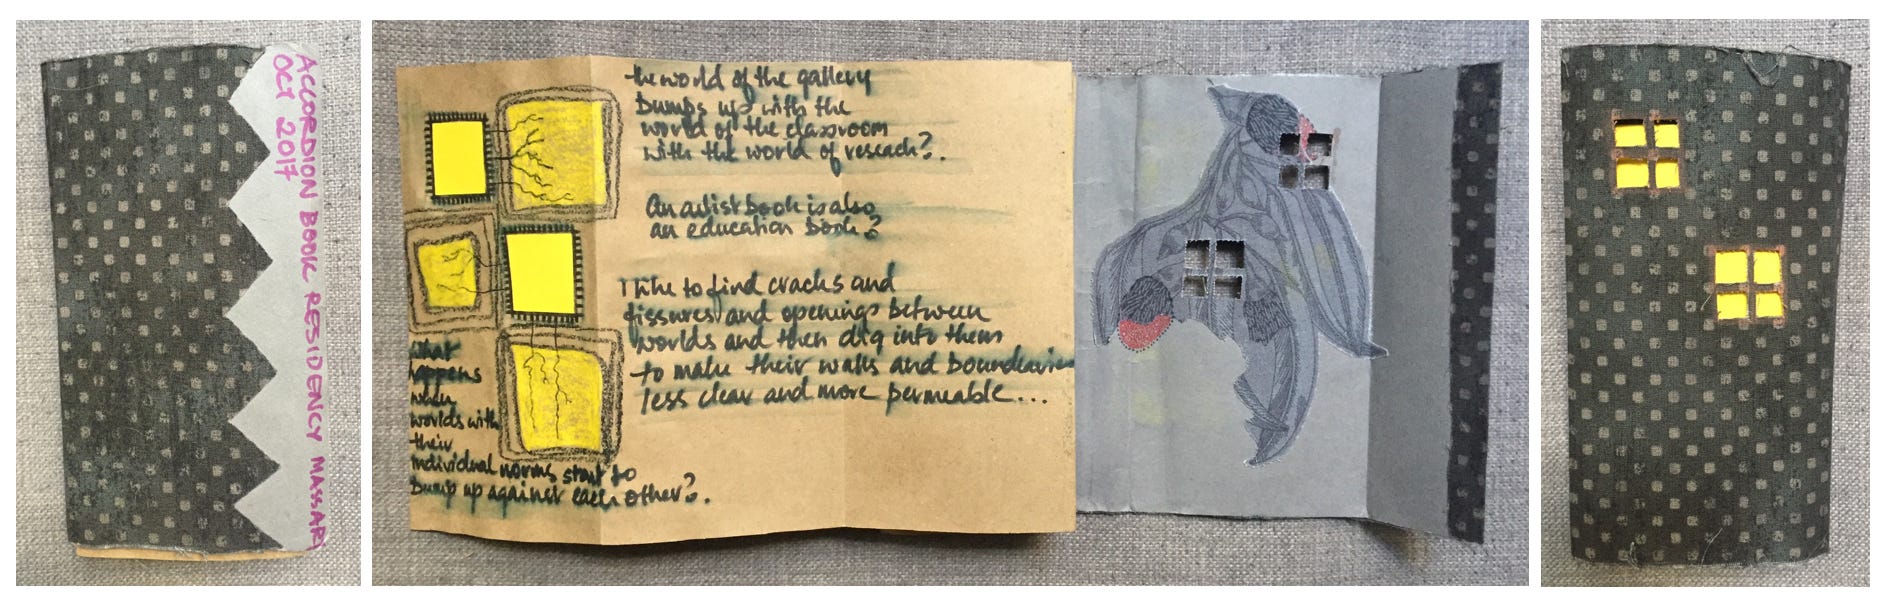 ACCORDION BOOK RESIDENCY MASSARI
OCT 2017
the world of the gallery
bumps up with the
world of the classroom
with the world of reseach?.
An artist book is also
an education book?
I like to find cracks and
fissures and openings between
worlds and then dig into them
to make their walls and boundearies
less clear and more permeable...
What
happens
when
worlds with
their
individual norms start to
bump up against each other?.